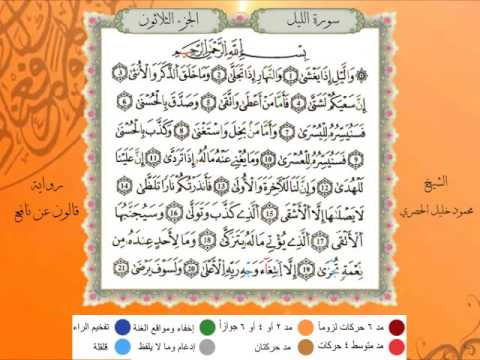 سورة الليل
الجزء الثلاثون
بِسْمِ اللَّهِ الرَّحْمَٰنِ الرَّحِيمِ
وَالَّيْلِ إِذَا يَغْشَىٰ 1 وَالنَّهَارِ إِذَا تَجَلَّىٰ 2 وَمَا خَلَقَ الذَّكَرَ وَالْأُنثَىٰ 3
إِنَّ سَعْيَكُمْ لَشَتَّىٰ 4 فَأَمَّا مَنْ أَعْطَىٰ وَاتَّقَىٰ 5 وَصَدَّقَ بِالْحُسْنَىٰ 6
فَسَنُيَسِّرُهُ لِلْيُسْرَىٰ 7 وَأَمَّا مَنْ بَخِلَ وَاسْتَغْنَىٰ 8 وَكَذَّبَ بِالْحُسْنَىٰ
9 فَسَنُيَسِّرُهُ لِلْعُسْرَىٰ 10 وَمَا يُغْنِي عَنْهُ مَالُهُ إِذَا تَرَدَّىٰ 11 إِنَّ عَلَيْنَا
لَلْهُدَىٰ 12 وَإِنَّ لَنَا لَلْآخِرَةَ وَالْأُولَىٰ 13 فَأَنذَرْتُكُمْ نَارًا تَلَظَّىٰ 14
لَا يَصْلَاهَا إِلَّا الْأَشْقَى 15 الَّذِي كَذَّبَ وَتَوَلَّىٰ 16 وَسَيُجَنَّبُهَا
الْأَتْقَى 17 الَّذِي يُؤْتِي مَالَهُ يَتَزَكَّىٰ 18 وَمَا لِأَحَدٍ عِنْدَهُ مِنْ
نِعْمَةٍ تُجْزَىٰ 19 إِلَّا ابْتِغَاءَ وَجْهِ رَبِّهِ الْأَعْلَىٰ 20 وَلَسَوْفَ يَرْضَىٰ 21
الشيخ
محمود خليل الحصري
رواية
قالون عن نافع
مد ٦ حركات لزوماً
مد ٢ أو ٤ أو ٦ جوازاً
إخفاء ومواقع الغنة
تفخيم الراء
مد متوسط ٤ حركات
مد حركتان
إدغام وما لا يلفظ
قلقلة